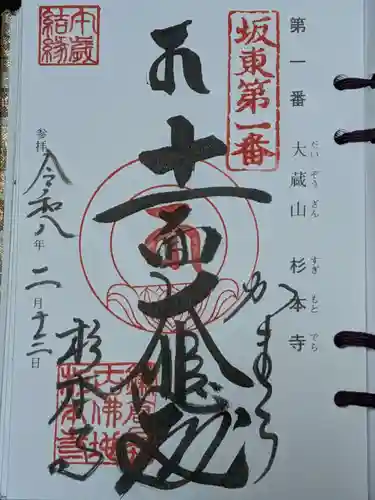 第一番 大蔵山 杉本寺
だいぞうざん すぎもとでら
坂東第一番
十一面大悲
かまくら
杉本寺
参拝 令和八年二月十三日
午歳
結縁